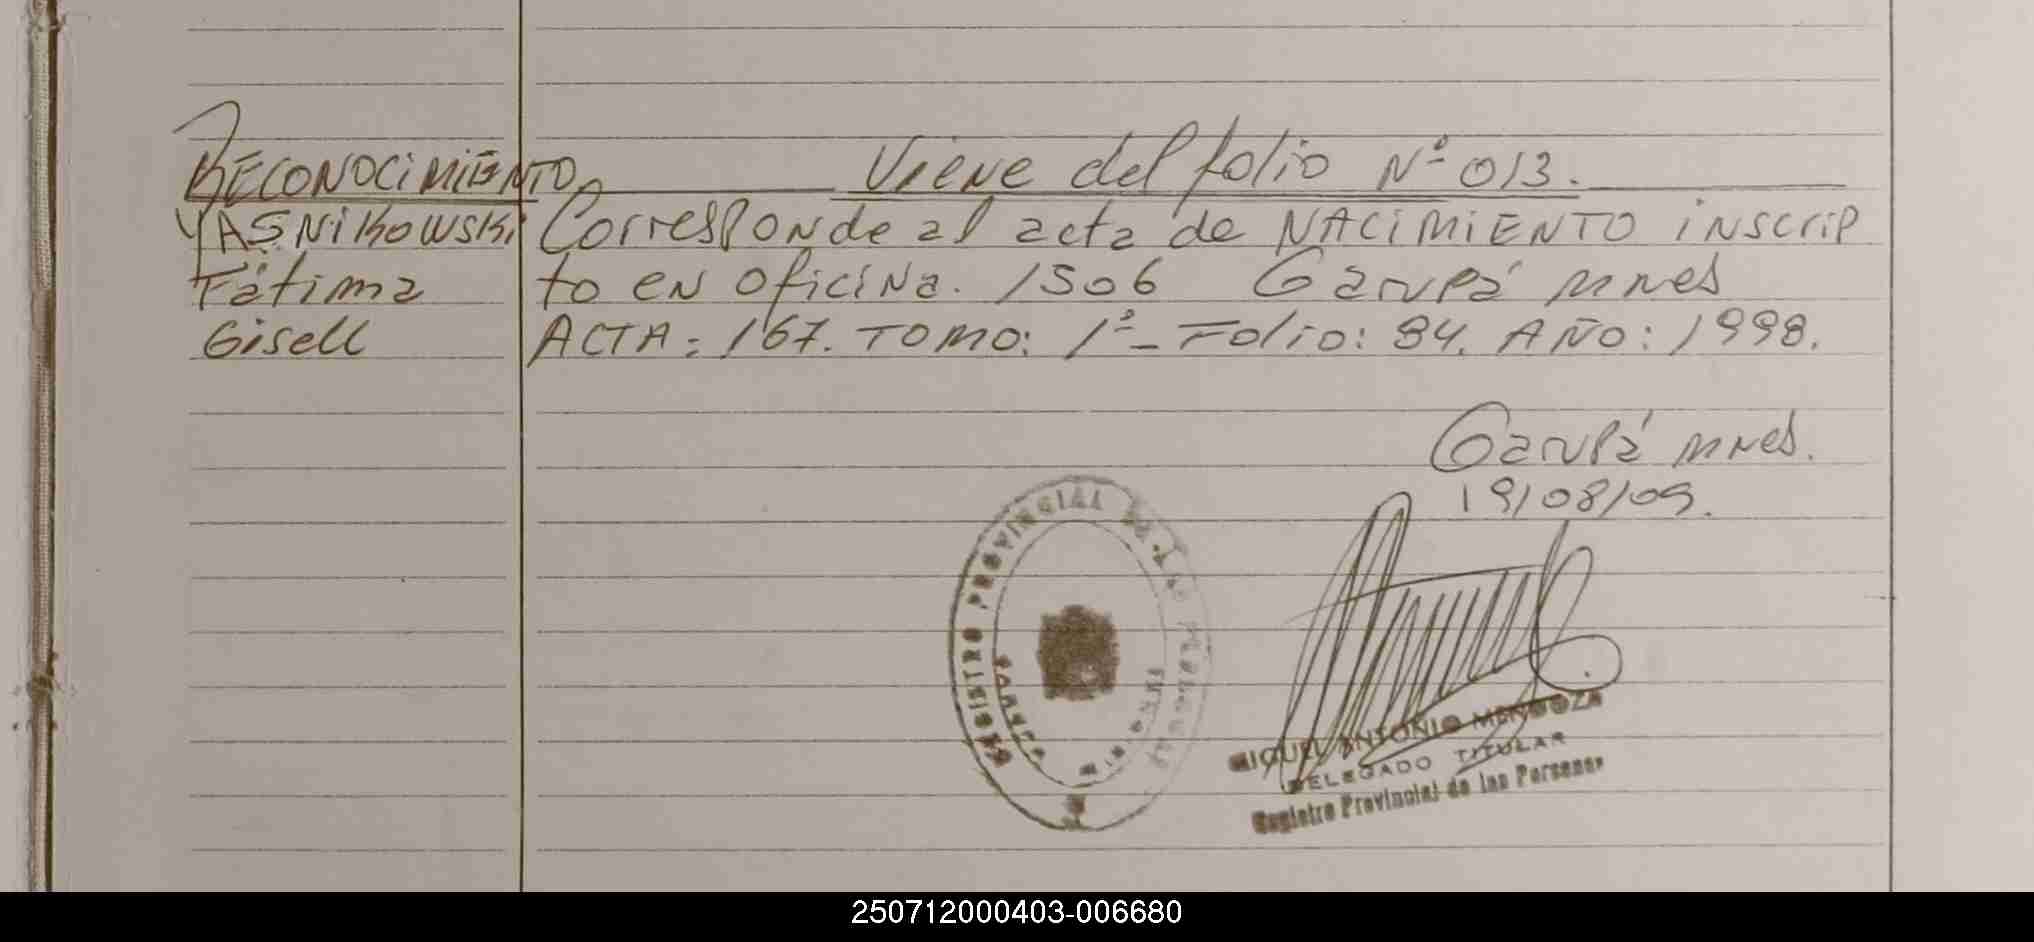 RECONOCIMIENTO
YASNIKOWSKI
Fátima
Gisell
Viene del folio Nº 013.
Corresponde al acta de NACIMIENTO inscrip
to en oficina. 1506 Garupá Mnes
ACTA: 167. TOMO: 1º - Folio: 84. AÑO: 1998.
Garupá Mnes.
19/08/09.
REGISTRO PROVINCIAL DE LAS PERSONAS
MIGUEL ANTONIO MENDOZA
DELEGADO TITULAR
Registro Provincial de las Personas
250712000403-006680